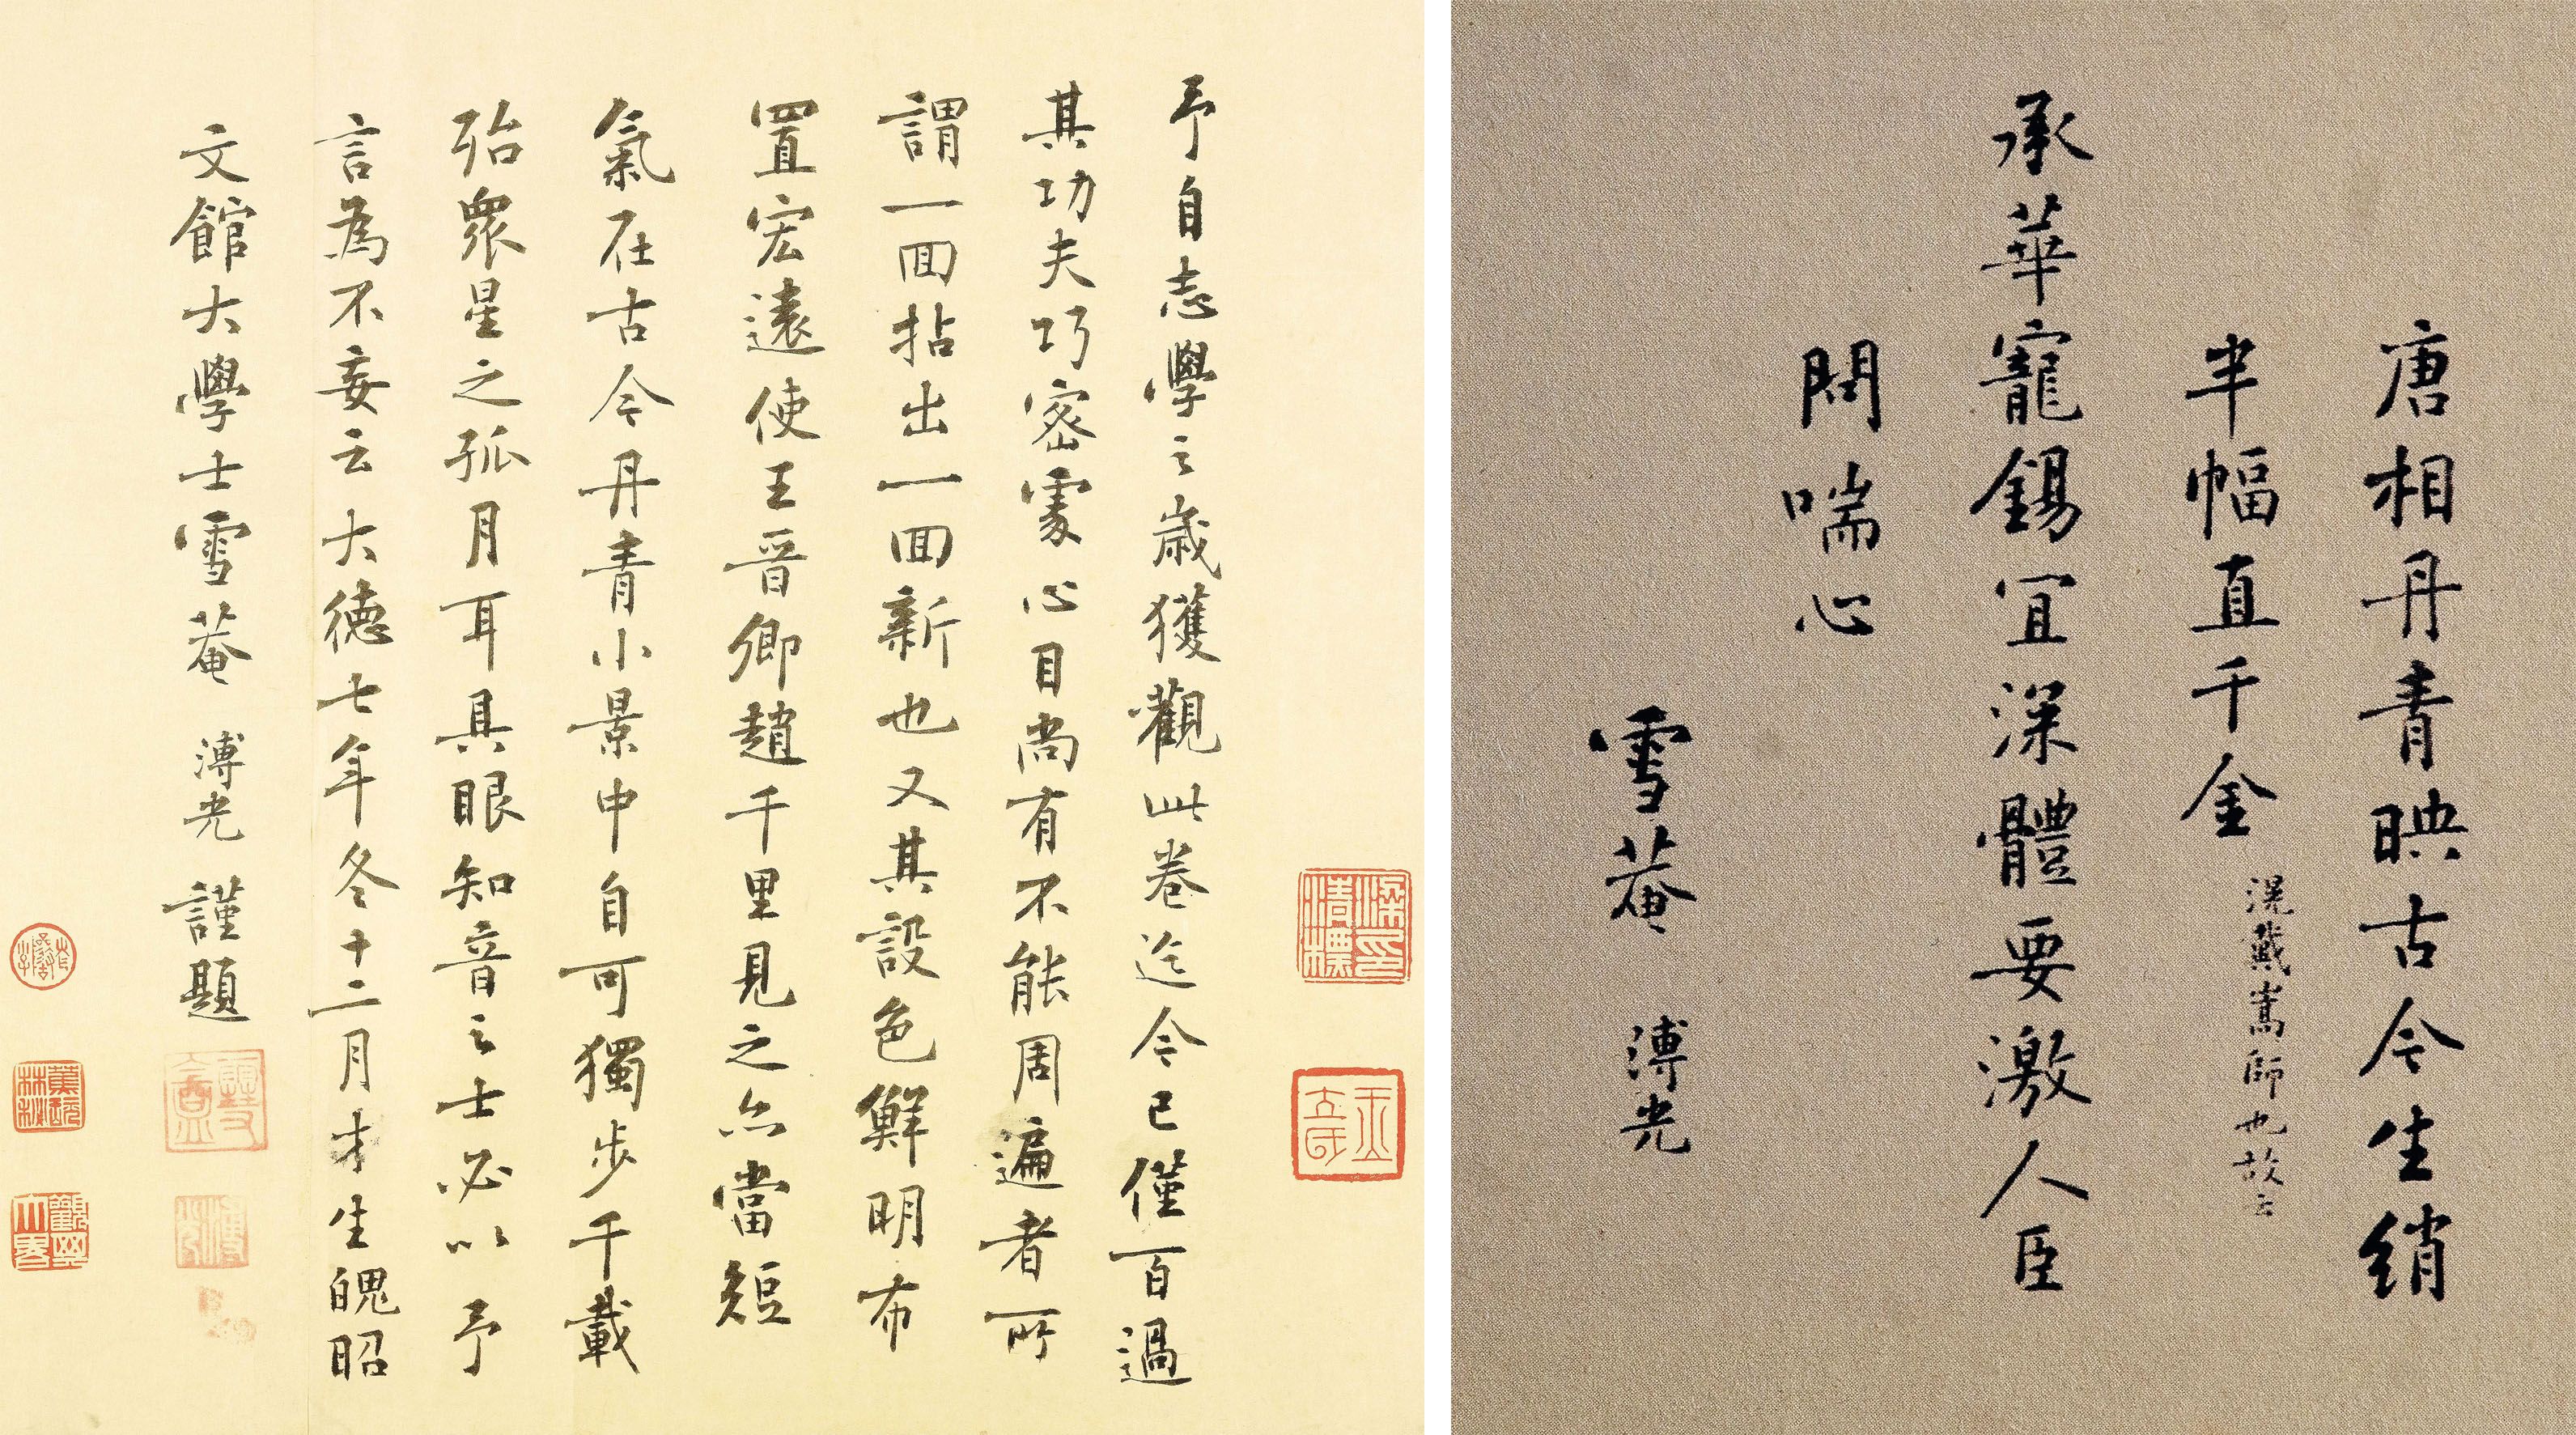 予自志學之歲獲觀此卷迄今已僅百過
其功夫巧密處心目尚有不能周遍者所
謂一回拈出一回新也又其設色鮮明布
置宏遠使王晉卿趙千里見之亦當短
氣在古今丹青小景中自可獨步千載
殆眾星之孤月耳具眼知音之士必以予
言為不妄云大德七年冬十二月才生魄昭
文館大學士雪菴溥光謹題
唐相丹青映古今生綃
半幅直千金
滉戴嵩師也故云
承華寵錫宜深體要激人臣
問喘心
雪菴溥光